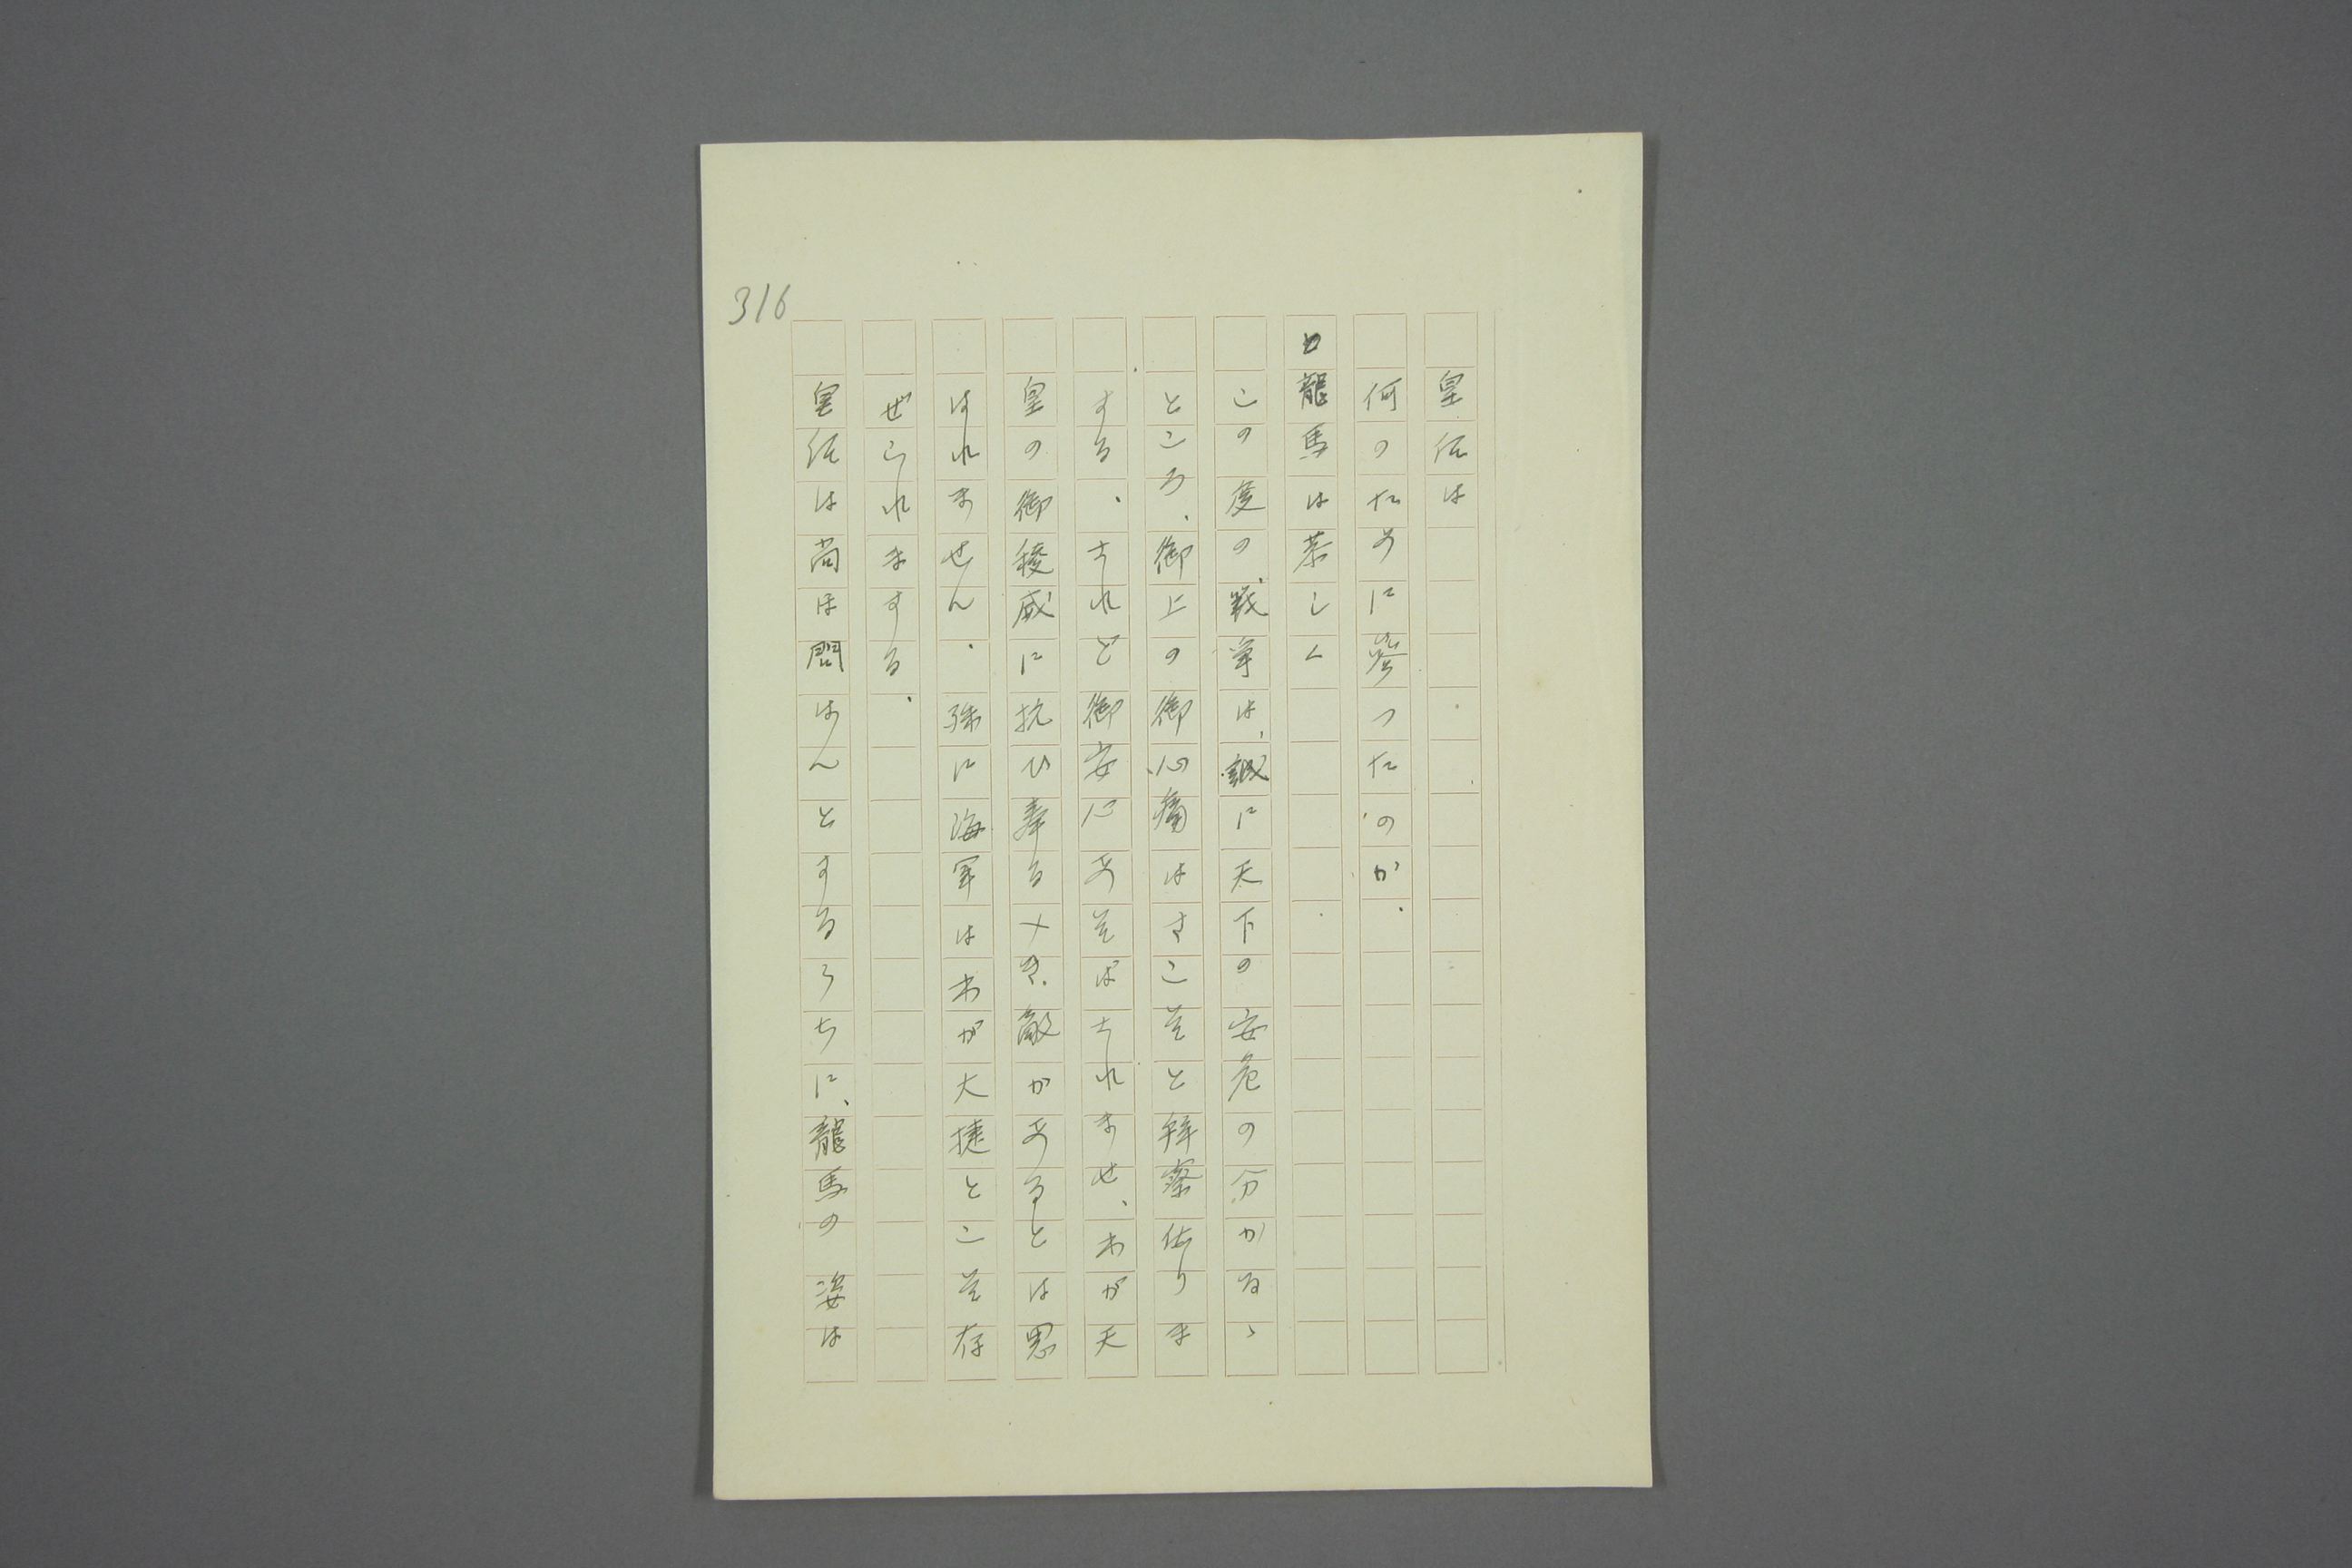 316
皇后は
何のために參つたのか。
と龍馬は恭しく
この度の戦争は、誠に天下の安危の分かるゝ
ところ、御上の御心痛はさこそと拝察仕りま
する、されど御安心あそばされませ、わが天
皇の御稜威に抗ひ奉る敵があるとは思
はれません。殊に海軍はわが大捷とこそ存
ぜられまする。
皇后は尚ほ問はんとするうちに、龍馬の姿は